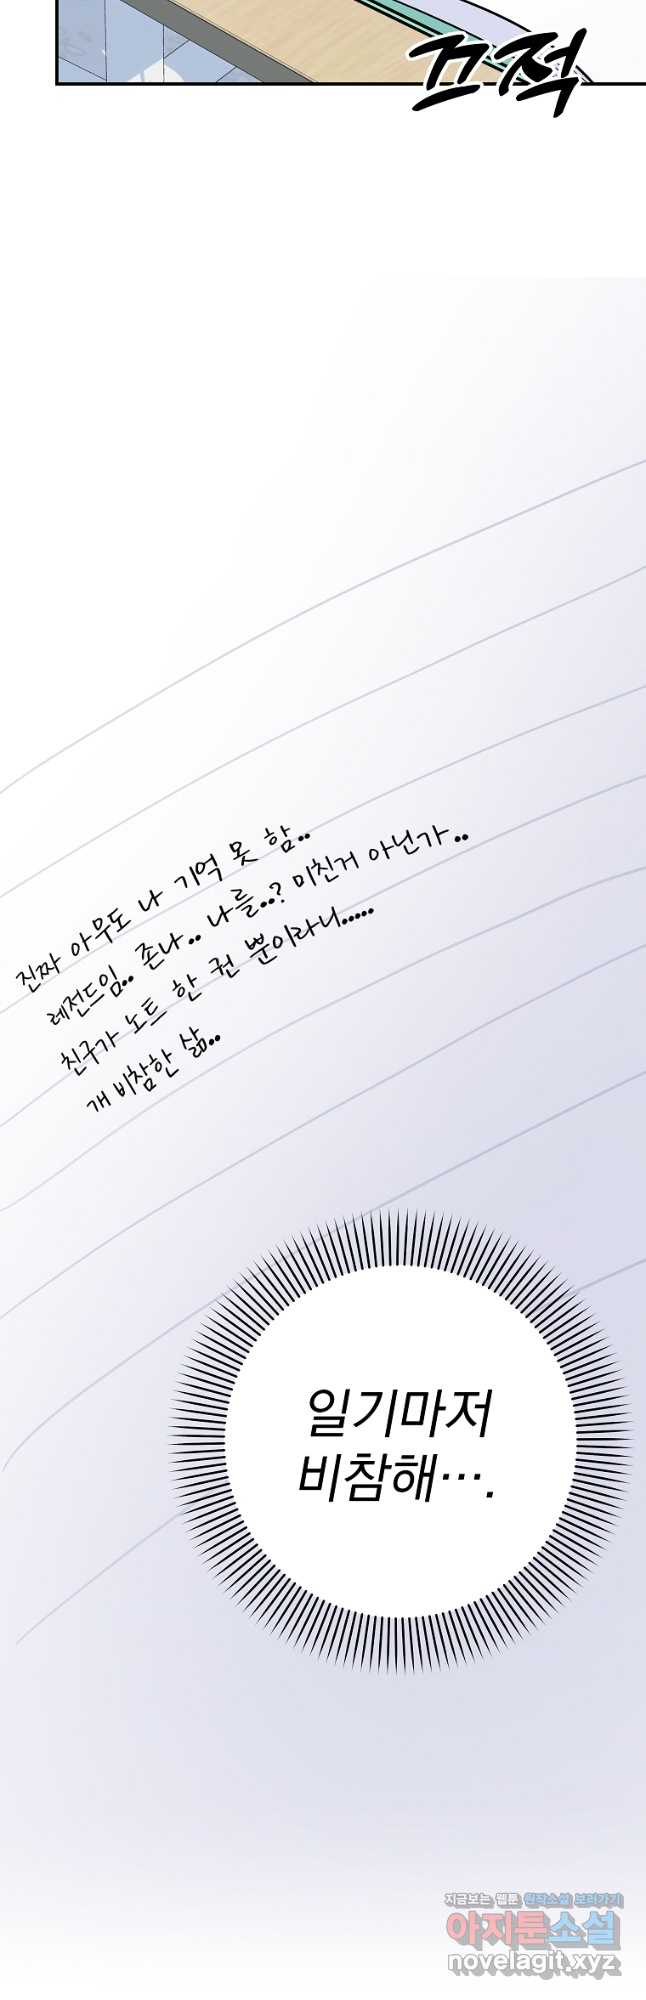 끄적
진짜 아무도 나 기억 못 함..
레전드임.. 존나.. 나를..? 미친거 아닌가..
친구가 노트 한 권 뿐이라니.....
개 비참한 삶..
일기마저
비참해….
지금보는 웹툰 원작소설 보러가기
아지툰소설
novelagit.xyz